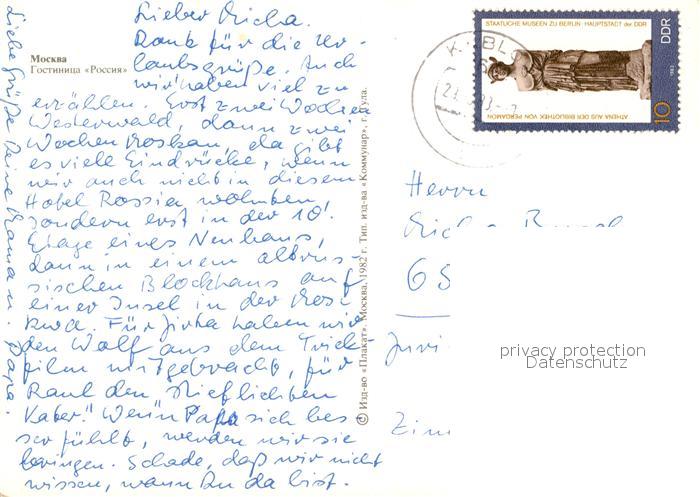 Lieber Micha.
Dank für die Ur-
laubsgrüße. Auch
wir haben viel zu
erzählen. Erst zwei Wochen
Westerwald, dann zwei
Wochen Moskau, da gibt
es viele Eindrücke, wenn
wir auch nicht in diesem
Hotel Rossia wohnten
sondern erst in der 10!
Etage eines Neubaus,
dann in einem altrus-
sischen Blockhaus auf
einer Insel in der Mos-
kwa. Für Jirka haben wir
den Wolf aus dem Trick-
film mitgebracht, für
Raul den "lieflichten
Kater." Wenn Papa sich bes-
ser fühlt, werden wir sie
bringen. Schade, daß wir nicht
wissen, wann Du da bist.
Liebe Grüße Deine Mama u. Papa.
Москва
Гостиница «Россия»
© Изд-во «Плакат». Москва. 1982 г. Тип. изд-ва «Коммунар», г. Тула.
STAATLICHE MUSEEN ZU BERLIN · HAUPTSTADT der DDR
DDR
1983
10
ATHENA AUS DER BIBLIOTHEK VON PERGAMON
Herrn
65
privacy protection
Datenschutz